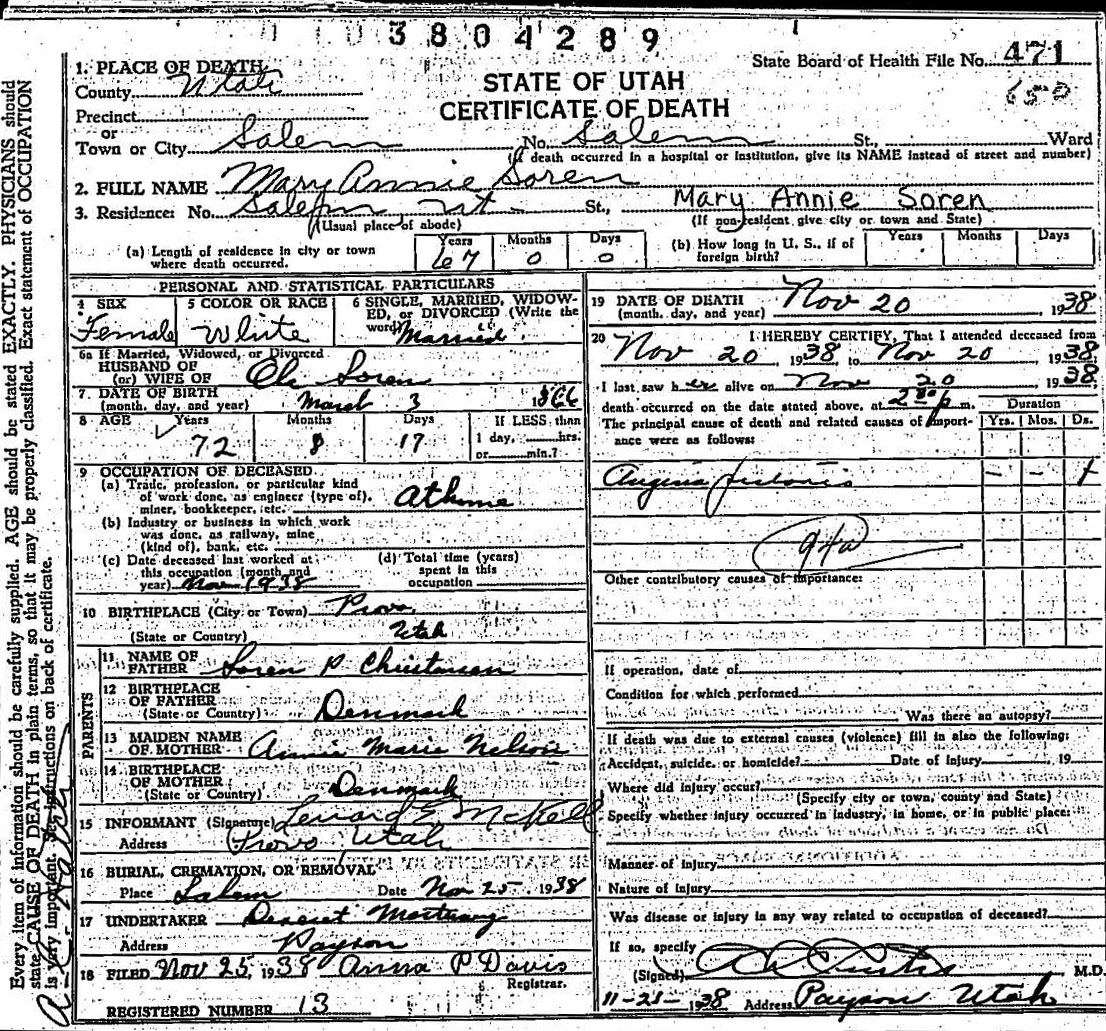 3804289
State Board of Health File No. 471
650
STATE OF UTAH
CERTIFICATE OF DEATH
1. PLACE OF DEATH
County Utah
Precinct
or
Town or City Salem No. Salem St., Ward
(If death occurred in a hospital or institution, give its NAME instead of street and number)
2. FULL NAME Mary Annie Soren
Mary Annie Soren
3. Residence: No. Salem Ut St.,
(Usual place of abode) (If non-resident give city or town and State)
(a) Length of residence in city or town where death occurred. Years 67 Months 0 Days 0
(b) How long in U. S., if of foreign birth? Years Months Days
PERSONAL AND STATISTICAL PARTICULARS
4 SEX Female
5 COLOR OR RACE White
6 SINGLE, MARRIED, WIDOWED, or DIVORCED (Write the word) Married
6a If Married, Widowed, or Divorced
HUSBAND OF
(or) WIFE OF Ole Soren
7 DATE OF BIRTH
(month, day, and year) March 3 1866
8 AGE Years 72 Months 8 Days 17 If LESS than 1 day, hrs. or min.?
9 OCCUPATION OF DECEASED
(a) Trade, profession, or particular kind of work done, as engineer (type of), miner, bookkeeper, etc. At home
(b) Industry or business in which work was done, as railway, mine (kind of), bank, etc.
(c) Date deceased last worked at this occupation (month and year) Nov 1938
(d) Total time (years) spent in this occupation
10 BIRTHPLACE (City or Town) Provo
(State or Country) Utah
PARENTS
11 NAME OF FATHER Soren P Christensen
12 BIRTHPLACE OF FATHER
(State or Country) Denmark
13 MAIDEN NAME OF MOTHER Annie Marie Nelson
14 BIRTHPLACE OF MOTHER
(State or Country) Denmark
15 INFORMANT (Signature) E McKell
Address Provo Utah
16 BURIAL, CREMATION, OR REMOVAL
Place Salem Date Nov 25 1938
17 UNDERTAKER Deseret Mortuary
Address Payson
18 FILED Nov 25, 1938 Anna P Davis
Registrar.
REGISTERED NUMBER 13
19 DATE OF DEATH
(month, day, and year) Nov 20 1938
20 I HEREBY CERTIFY, That I attended deceased from
Nov 20 1938, to Nov 20 1938,
I last saw her alive on Nov 20 1938,
death occurred on the date stated above, at p m.
The principal cause of death and related causes of importance were as follows:
Duration
Yrs. Mos. Ds.
Angina Pectoris - - 1
94a
Other contributory causes of importance:
If operation, date of
Condition for which performed
Was there an autopsy?
If death was due to external causes (violence) fill in also the following:
Accident, suicide, or homicide? Date of injury 19
Where did injury occur?
(Specify city or town, county and State)
Specify whether injury occurred in industry, in home, or in public place:
Manner of injury
Nature of injury
Was disease or injury in any way related to occupation of deceased?
If so, specify
(Signed) M.D.
1938 Address Payson Utah
Every item of information should be carefully supplied. AGE should be stated EXACTLY. PHYSICIANS should
state CAUSE OF DEATH in plain terms, so that it may be properly classified. Exact statement of OCCUPATION
is very important. See instructions on back of certificate.